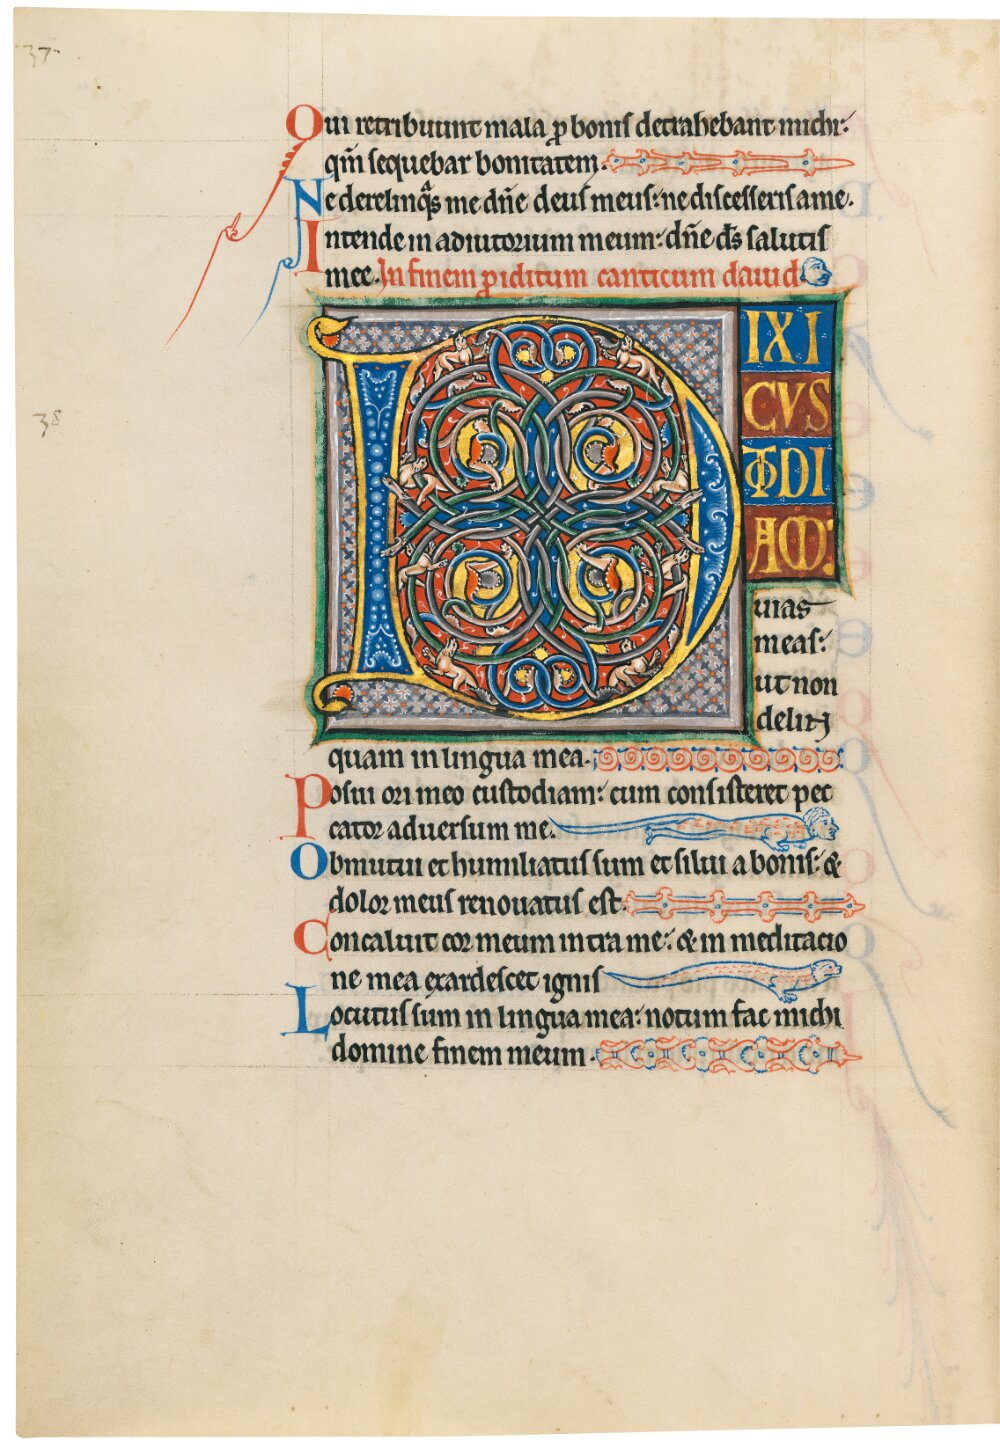 37
Qui retribuunt mala ꝓ bonis detrahebant michi:
qm̄ sequebar bonitatem.
Ne derelinq̃s me dn̄e deus meus: ne discesseris a me.
Intende in adiutorium meum: dn̄e ds̄ salutis
mee. In finem ꝓ iditum canticum dauid
38
DIXI
CVS
TODI
AM:
uias
meas:
ut non
delinq̃
quam in lingua mea.
Posui ori meo custodiam: cum consisteret pec
cator aduersum me.
Obmutui et humiliatus sum et silui a bonis: &
dolor meus renouatus est.
Concaluit cor meum intra me: & in meditatio
ne mea exardescet ignis
Locutus sum in lingua mea: notum fac michi
domine finem meum.